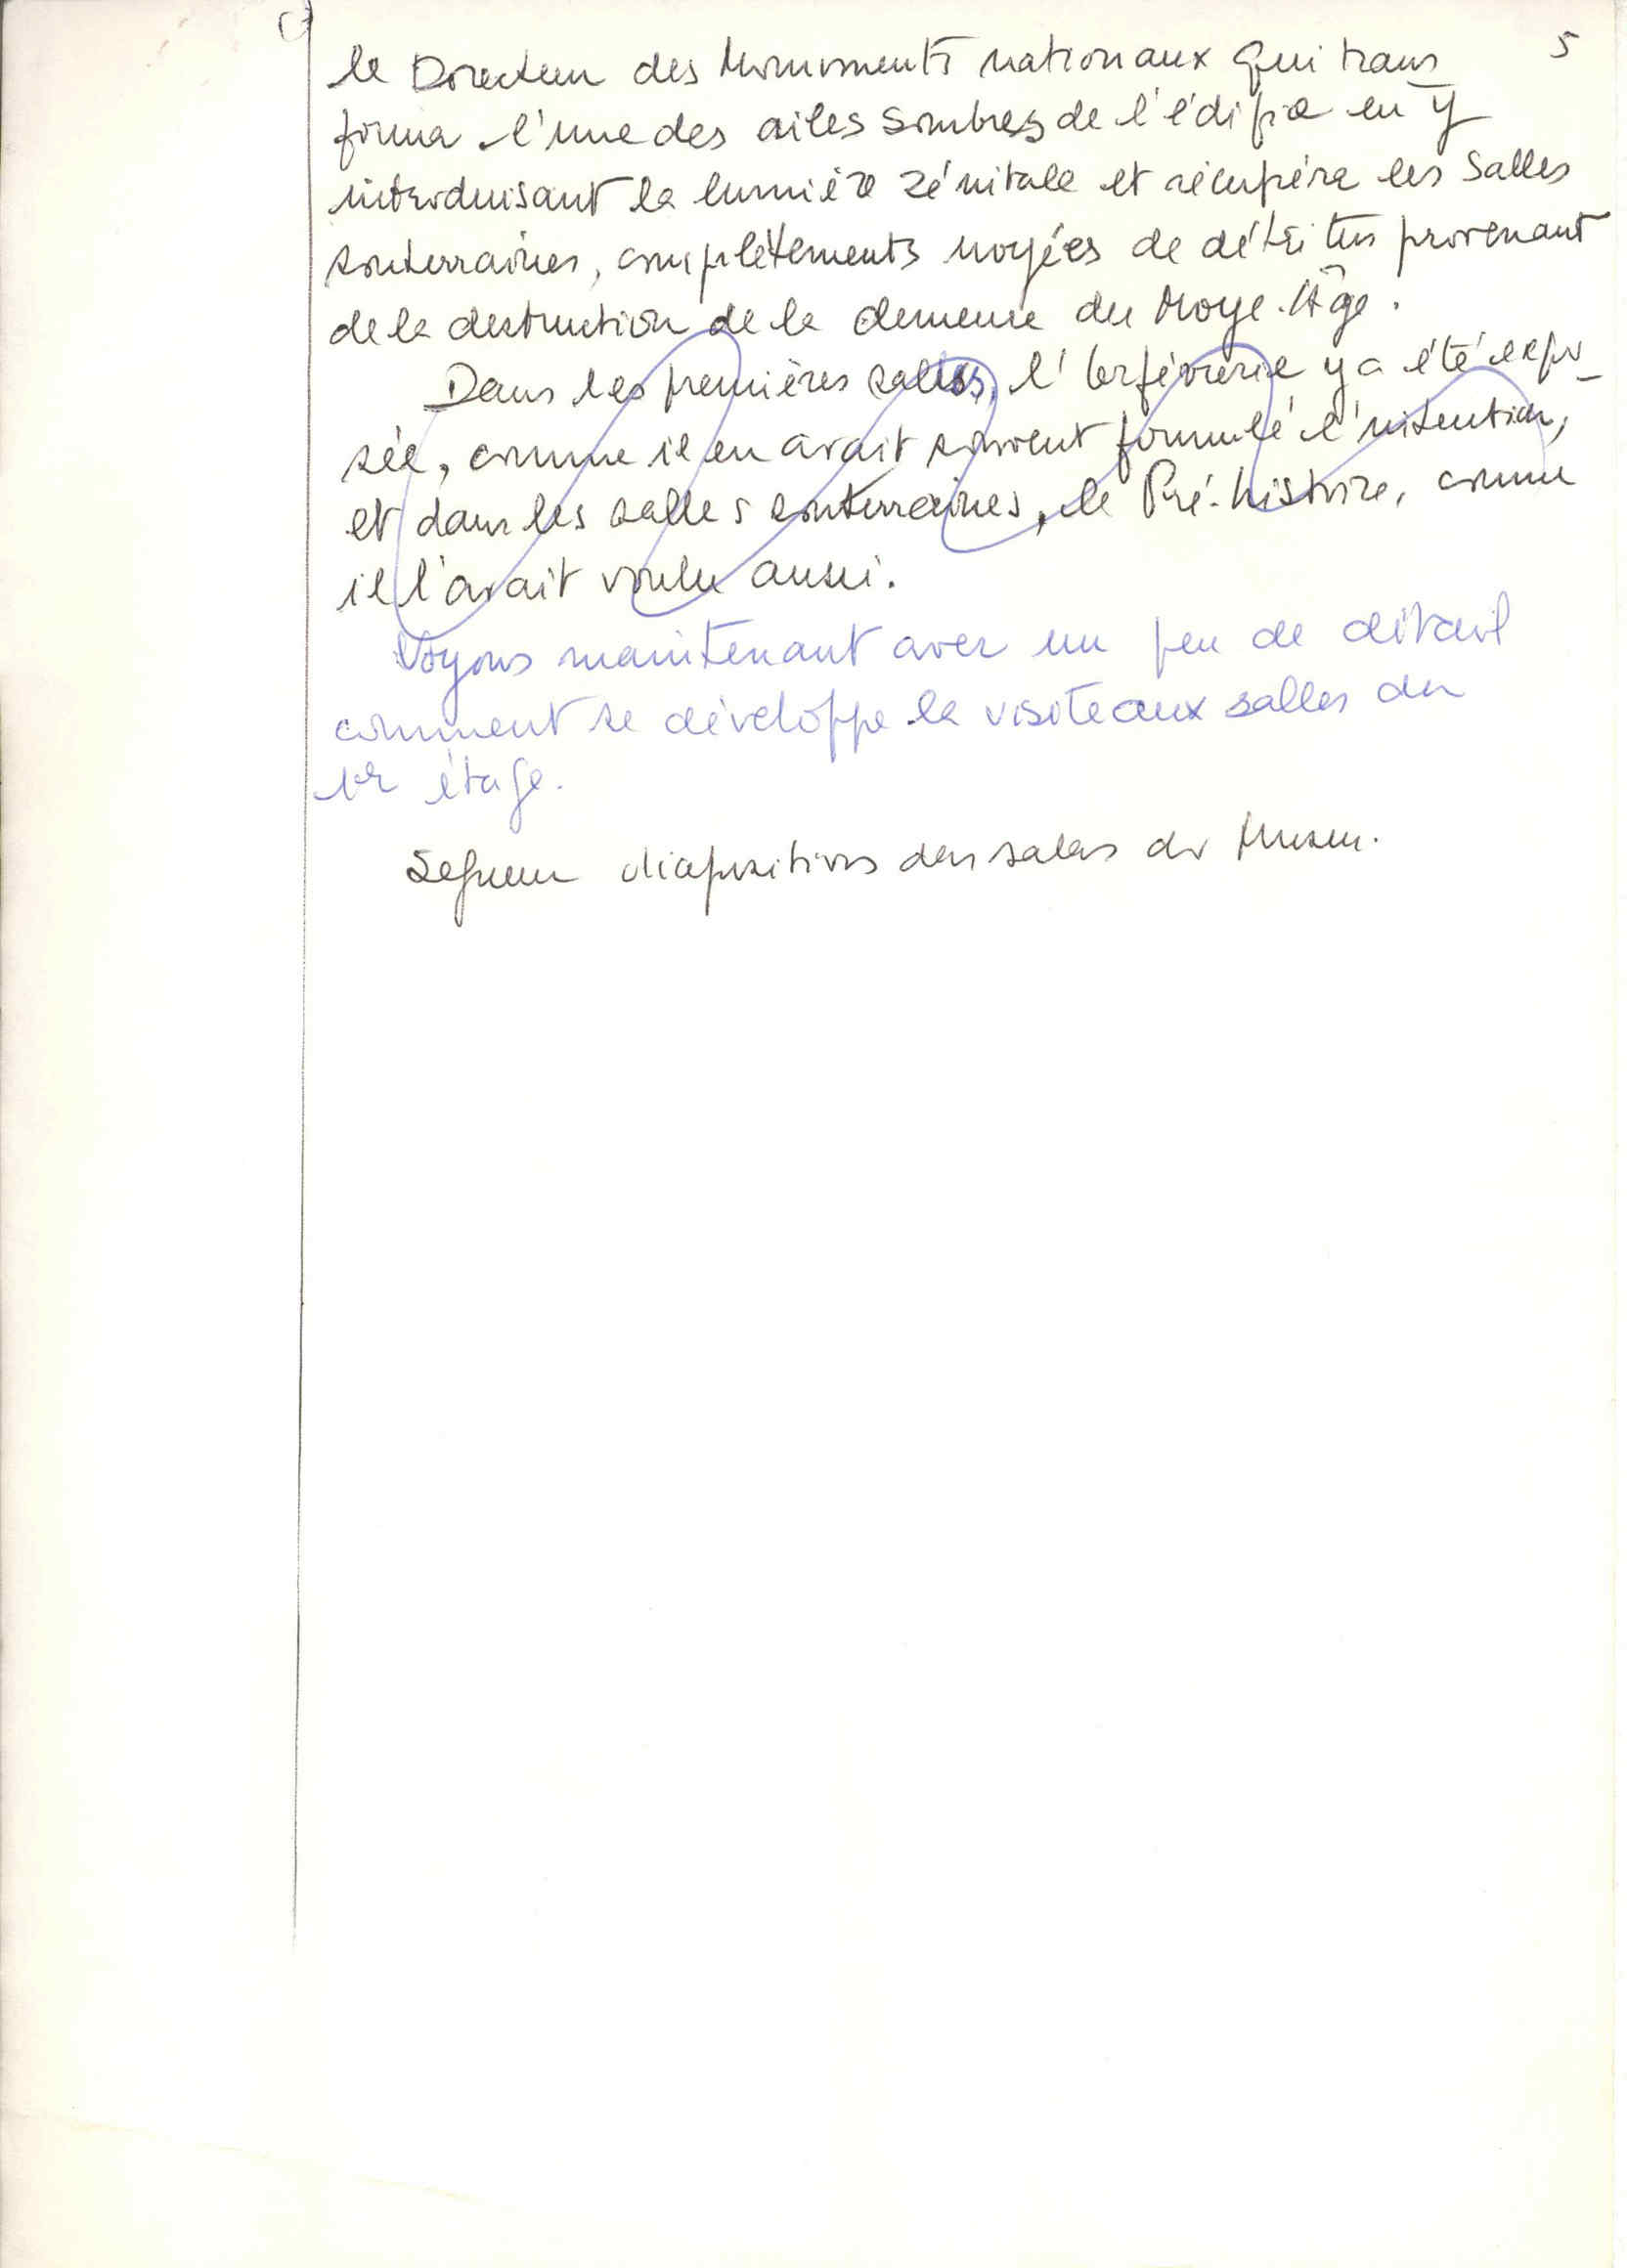 5
le Directeur des Monuments nationaux qui trans
forma l'une des ailes sombres de l'édifice en y
introduisant la lumière zénitale et récupéra les salles
souterraines, complètements noyées de détritus provenant
de la destruction de la demeure du Moye-Âge.
Dans les premières salles, l'orfévrerie y a été expo_
sée, comme il en avait souvent formulé l'intention,
et dans les salles souterraines, le Pré-histoire, comme
il l'avait voulu aussi.
Voyons maintenant avec un peu de détail
comment se développe la visite aux salles du
1er étage.
Seguem diapositivos das salas do Museu.